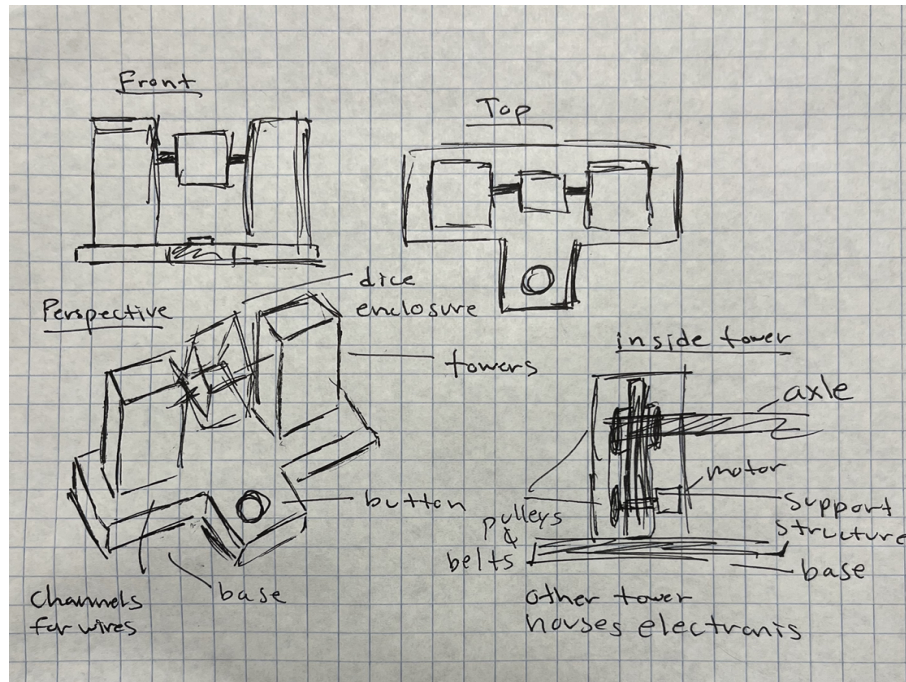 Front
Top
Perspective
dice
enclosure
towers
button
base
channels
for wires
inside tower
axle
motor
support
structure
pulleys
&
belts
base
other tower
houses electronis